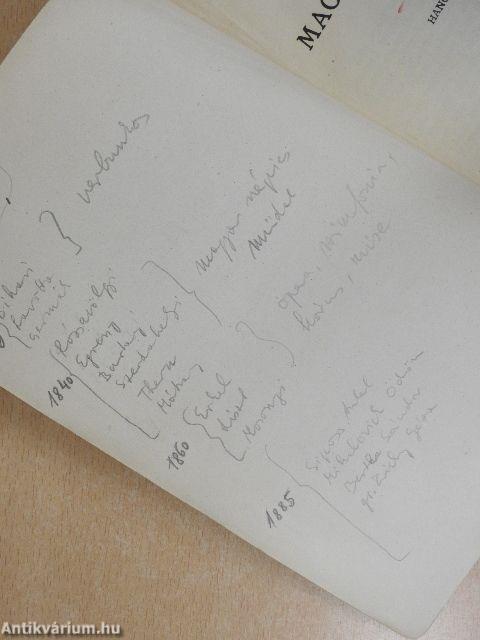 MAG
HANG
Bihari
Lavotta
Csermák
verbunkos
1840
Rózsavölgyi
Egressy
Bartay
Szerdahelyi
Thern
Mátray
magyar népies
műdal
1860
Erkel
Liszt
Mosonyi
opera, szimfónia,
kórus, mise
1885
Mihalovich Ödön
Bertha Sándor
gr. Zichy Géza
Antikvárium.hu